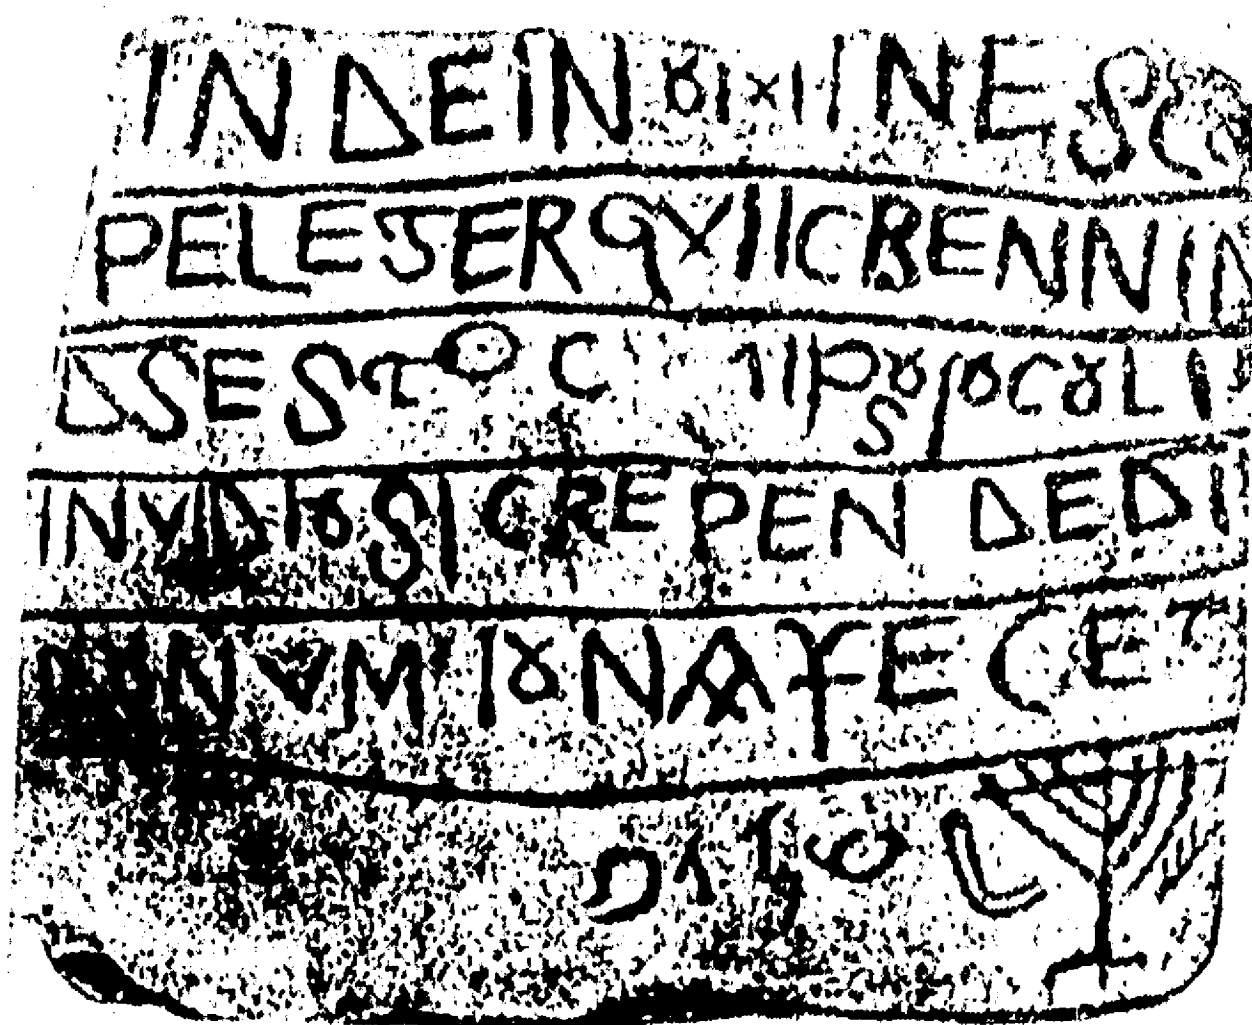 IN DEI NOMINE SCO
PELEGER QVI IC BENNI
DS ESTO C IPSO OCOLI
INVIDIOSI CREPEN DE DI
DONVM IONA FECET
שלום